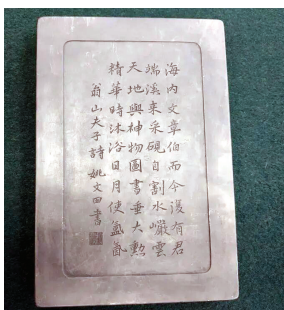 海內文章伯而今復有君
端溪来采硯自割水巖雲
天地興神物圖書垂大勲
精華時沐浴日月使氤氳
翁山夫子詩姚文田書